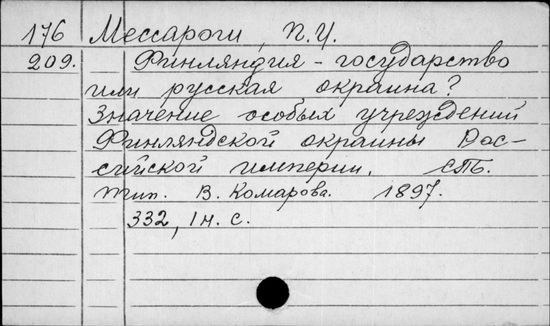 176 Мессарош, П. И.
209. Финляндия - государство
или русская окраина?
Значение особых учреждений
Финляндской окраины Рос-
сийской империи. СПб.
тип. В. Комарова. 1897.
332, 1 н. с.